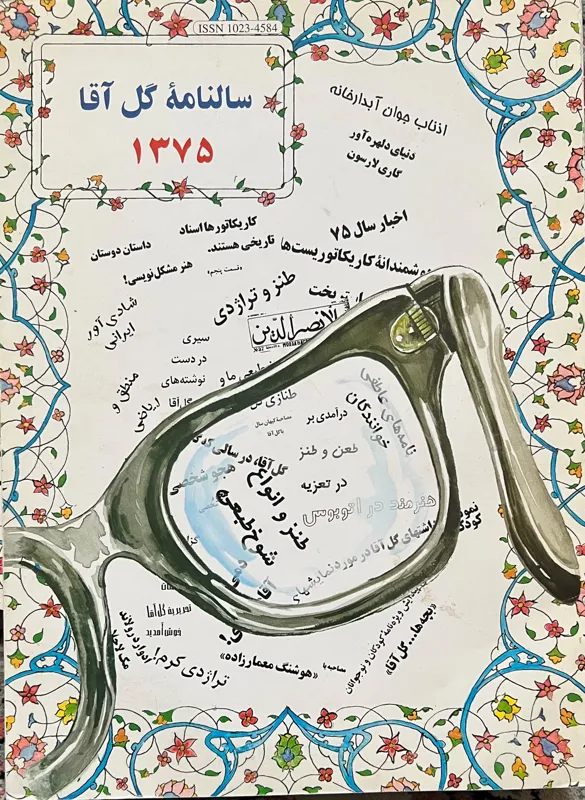 ISSN 1023-4584
سالنامهٔ گل آقا
۱۳۷۵
اذناب جوان آبدارخانه
دنیای دلهره‌آور
گاری لارسون
اخبار سال ۷۵
کاریکاتورها اسناد
تاریخی هستند.
شمندانهٔ کاریکاتوریست‌ها
داستان دوستان
هنر مشکل‌نویسی!
«قسمت پنجم»
طنز و تراژدی
ریخت
شادی آور
ایرانی
ملانصرالدین
سیری
در دست
نوشته‌های
گل‌آقا
منطق و
ریاضی
طبیعی ما و
طنازی
مصاحبهٔ کیهان سال
با گل آقا
درآمدی بر
طعن و طنز
در تعزیه
نامه‌های
خوانندگان
گل آقا، در سالی که
هجو شخصی
طنز و انواع
شوخ‌طبعی
هنرمند در اتوبوس
داشتهای گل آقا در مورد نمایشهای
نمو
کودک
تحریریهٔ گل‌آقا
خوش آمدید
ادوارد و رولاند
تراژدی کرم!
مصاحبه با
«هوشنگ معمارزاده»
ویژه‌نامهٔ کودکان و نوجوانان
«بچه‌ها... گل آقا»